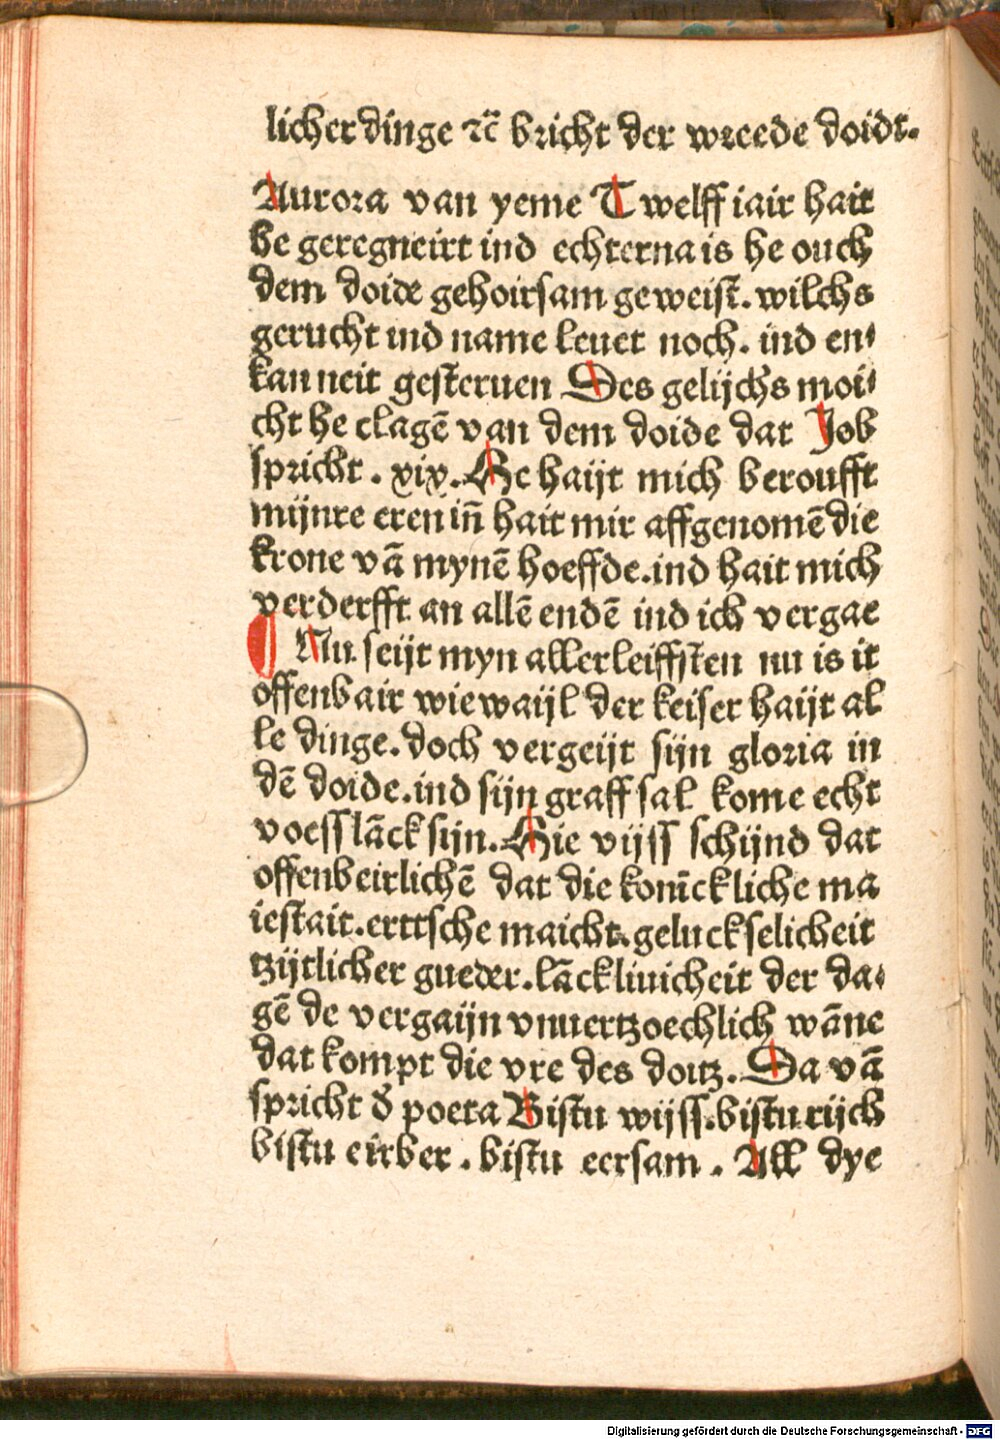 licher dinge ⁊c̄ bricht der wreede doidt.
Aurora van yeme Twelff iair hait
he geregneirt ind echterna is he ouch
dem doide gehoirsam geweist. wilchs
gerucht ind name leuet noch. ind en⸗
kan neit gesteruen Des gelijchs moi⸗
cht he clagē van dem doide dat Job
spricht. xix. He haijt mich beroufft
mijnre eren iñ hait mir affgenomē die
krone vā mynē hoeffde. ind hait mich
verderfft an allē endē ind ich vergae
¶ Nu seijt myn allerleiffsten nu is it
offenbair wiewaijl der keiser haijt al
le dinge. doch vergeijt sijn gloria in
dē doide. ind sijn graff sal kome echt
voess lāck sijn. Hie vijss schijnd dat
offenbeirlichē dat die konīckliche ma
iestait. erttsche maicht. geluckselicheit
tzijtlicher gueder. lāckliuicheit der da⸗
gē de vergaijn vnuertzoechlich wāne
dat kompt die vre des doitz. Da vā
spricht d̕ poeta Bistu wijss. bistu rijch
bistu eirber. bistu eersam. All dye
Digitalisierung gefördert durch die Deutsche Forschungsgemeinschaft - DFG